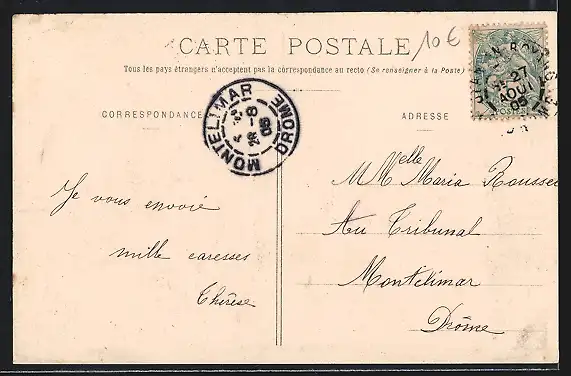 CARTE POSTALE
10 €
Tous les pays étrangers n'acceptent pas la correspondance au recto (Se renseigner à la Poste)
CORRESPONDANCE
ADRESSE
MONTELIMAR
DROME
28 - 8
05
EN ROYANS
27
AOUT
05
POSTES
Je vous envoie
mille caresses
Thérèse
M Melle Maria Roussec
Au Tribunal
Montélimar
Drôme